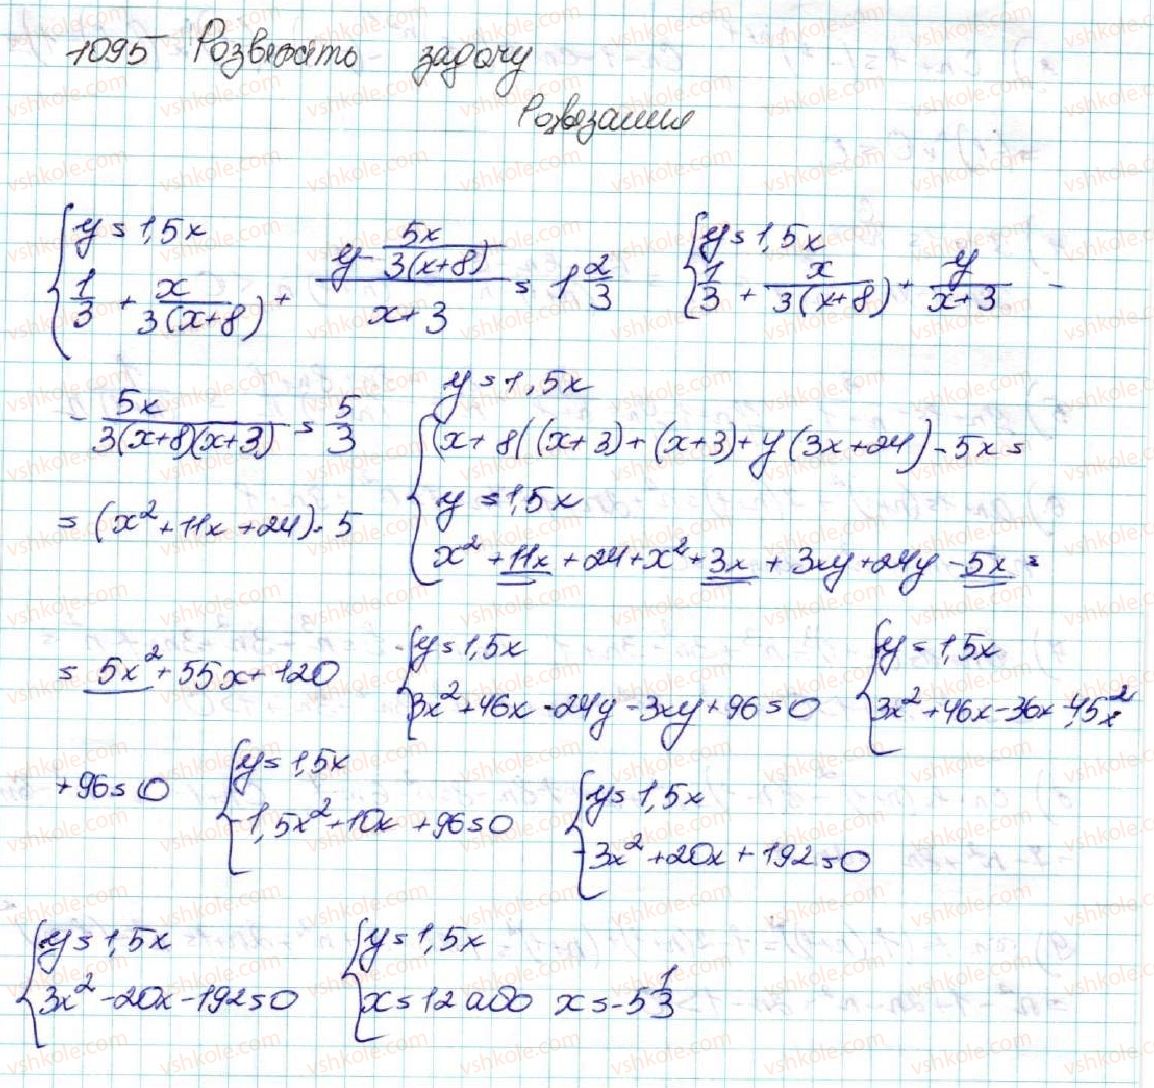 1095 Розвязать задачу
Розвезання
{ y = 1,5x ; 1/3 + x/(3(x+8)) + (y - 5x/(3(x+8)))/(x+3) = 1 2/3 { y = 1,5x ; 1/3 + x/(3(x+8)) + y/(x+3) -
- 5x/(3(x+8)(x+3)) = 5/3 { y = 1,5x ; (x+8((x+3)+(x+3)+y(3x+24)-5x =
= (x²+11x+24)·5 { y = 1,5x ; x²+11x+24+x²+3x+3xy+24y-5x =
= 5x²+55x+120 { y = 1,5x ; 3x²+46x-24y-3xy+96=0 { y = 1,5x ; 3x²+46x-36x-4,5x²
+96=0 { y = 1,5x ; -1,5x²+10x+96=0 { y = 1,5x ; -3x²+20x+192=0
{ y = 1,5x ; 3x²-20x-192=0 { y = 1,5x ; x=12 або x=-5 1/3
vshkole.com